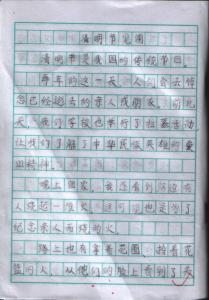 清明节见闻
清明节是我国的传统节日。
每年的这一天，人们会去悼
念已经逝去的亲人或朋友。前几
天，我们学校也举行了扫墓活动
让我们了解了中华民族英雄的爱
国精神。
晚上回家，我还看到路边有
人烧起一堆火，这可能也是为了
纪念亲人而烧的火。
路上也有拿着花圈、抬着花
篮的人，从他们的脸上看到了